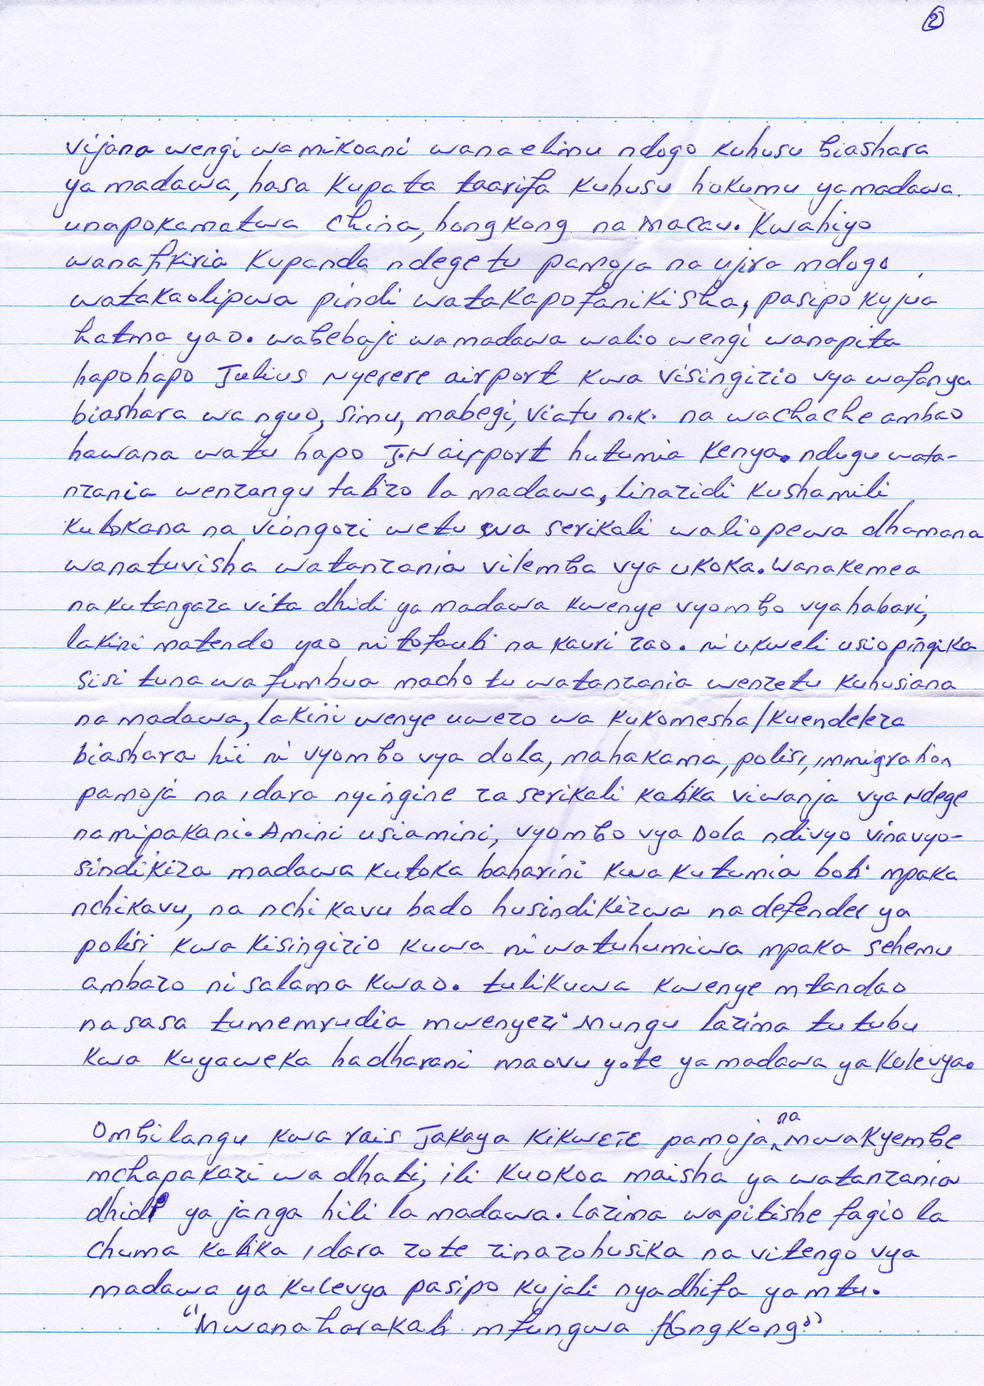 2
vijana wengi wa mikoani wana elimu ndogo kuhusu biashara
ya madawa, hasa kupata taarifa kuhusu hukumu ya madawa.
unapokamatwa china, hongkong na Macau. Kwahiyo
wanafikiria kupanda ndege tu pamoja na ujira mdogo
watakaolipwa pindi watakapofanikisha, pasipo kujua
hatma yao. wabebaji wa madawa walio wengi wanapita
hapohapo Julius Nyerere airport kwa visingizio vya wafanya
biashara wa nguo, simu, mabegi, viatu n.k. na wachache ambao
hawana watu hapo J.N airport hutumia Kenya. ndugu wata-
nzania wenzangu tatizo la madawa, linazidi kushamili
kutokana na viongozi wetu wa serikali waliopewa dhamana
wanatuvisha watanzania vilemba vya ukoka. wanakemea
na kutangaza vita dhidi ya madawa kwenye vyombo vya habari,
lakini matendo yao ni tofauti na kauri zao. ni ukweli usiopingika
sisi tuna wafumbua macho tu watanzania wenzetu kuhusiana
na madawa, lakini wenye uwezo wa kukomesha/kuendeleza
biashara hii ni vyombo vya dola, mahakama, polisi, immigration
pamoja na idara nyingine za serikali katika viwanja vya Ndege
na mipakani. Amini usiamini, vyombo vya Dola ndivyo vinavyo-
sindikiza madawa kutoka baharini kwa kutumia boti mpaka
nchikavu, na nchi kavu bado husindikizwa na defender ya
polisi kwa kisingizio kuwa ni watuhumiwa mpaka sehemu
ambazo ni salama kwao. tulikuwa kwenye mtandao
na sasa tumemrudia mwenyezi Mungu lazima tutubu
kwa kuyaweka hadharani maovu yote ya madawa ya kulevya.
Ombi langu kwa rais Jakaya Kikwete pamoja na mwakyembe
mchapakazi wa dhati, ili kuokoa maisha ya watanzania
dhidi ya janga hili la madawa. Lazima wapitishe fagio la
chuma katika idara zote zinazohusika na vitengo vya
madawa ya kulevya pasipo kujali nyadhifa ya mtu.
"Mwanaharakati mfungwa HongKong"